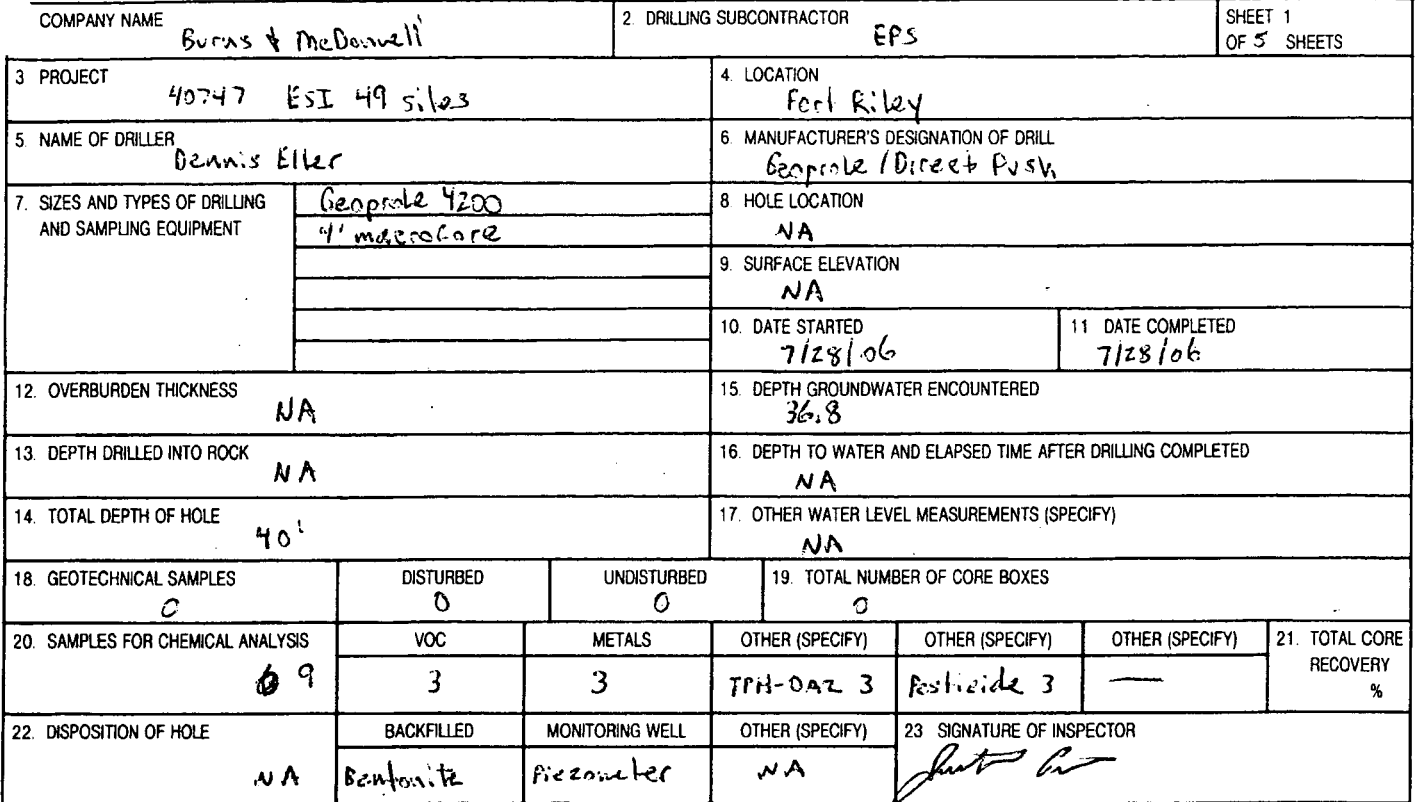 COMPANY NAME
Burns & McDonnell
2. DRILLING SUBCONTRACTOR
EPS
SHEET 1
OF 5 SHEETS
3 PROJECT
40747 ESI 49 sites
4. LOCATION
Fort Riley
5. NAME OF DRILLER
Dennis Eller
6. MANUFACTURER'S DESIGNATION OF DRILL
Geoprobe / Direct Push
7. SIZES AND TYPES OF DRILLING
AND SAMPLING EQUIPMENT
Geoprobe 4200
4' macroCore
8. HOLE LOCATION
NA
9. SURFACE ELEVATION
NA
10. DATE STARTED
7/28/06
11 DATE COMPLETED
7/28/06
12. OVERBURDEN THICKNESS
NA
15. DEPTH GROUNDWATER ENCOUNTERED
36.8
13. DEPTH DRILLED INTO ROCK
NA
16. DEPTH TO WATER AND ELAPSED TIME AFTER DRILLING COMPLETED
NA
14. TOTAL DEPTH OF HOLE
40'
17. OTHER WATER LEVEL MEASUREMENTS (SPECIFY)
NA
18. GEOTECHNICAL SAMPLES
0
DISTURBED
0
UNDISTURBED
0
19. TOTAL NUMBER OF CORE BOXES
0
20. SAMPLES FOR CHEMICAL ANALYSIS
9
VOC
3
METALS
3
OTHER (SPECIFY)
TPH-OA2 3
OTHER (SPECIFY)
Pesticide 3
OTHER (SPECIFY)
—
21. TOTAL CORE
RECOVERY
%
22. DISPOSITION OF HOLE
NA
BACKFILLED
Bentonite
MONITORING WELL
Piezometer
OTHER (SPECIFY)
NA
23 SIGNATURE OF INSPECTOR